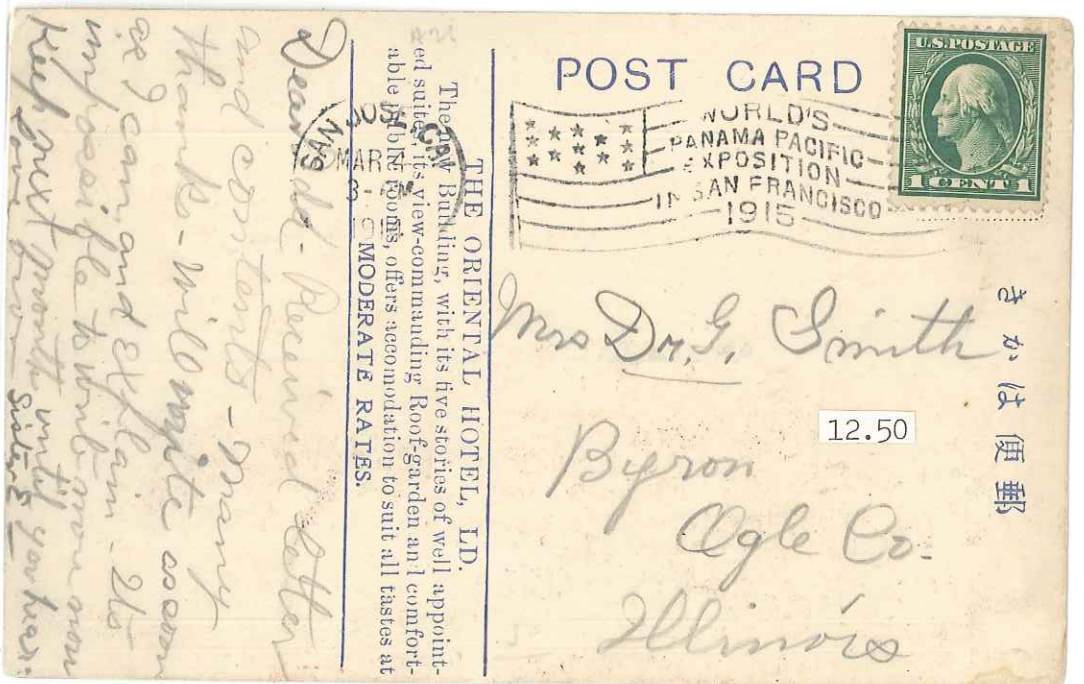 POST CARD
U.S. POSTAGE
1 CENT 1
WORLD'S
PANAMA PACIFIC
EXPOSITION
IN SAN FRANCISCO
1915
SAN JOSE CAL
MAR
8-
THE ORIENTAL HOTEL, LD.
The new Building, with its five stories of well appoint-
ed suites, its view-commanding Roof-garden and comfort-
able public rooms, offers accomodation to suit all tastes at
MODERATE RATES.
きかは便郵
Mrs Dr. G. Smith
12.50
Byron
Ogle Co.
Illinois
Dear Received letter
and contents - many
thanks - will write as soon
as I can and explain - its
impossible to write more now
Keep next months until you hear.
Love from
Sister E